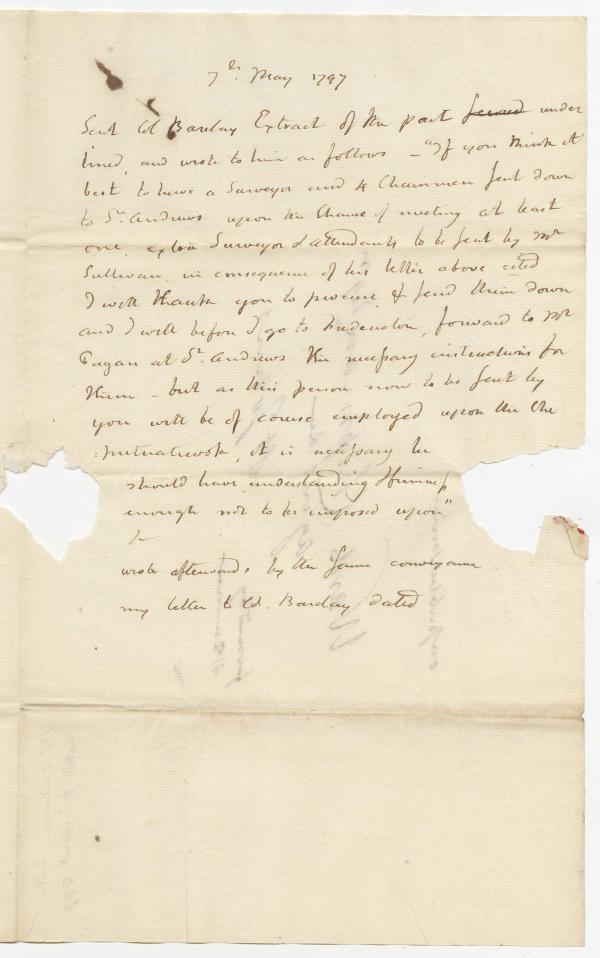 7th. May 1797
Sent Col Barclay Extract of the part scored under
lined, and wrote to him as follows – "If you think it
best to have a Surveyor and 4 Chainmen sent down
to St. Andrews upon the Chance of meeting at least
one extra Surveyor & attendants to be sent by Mr
Sullivan, in consequence of his letter above cited
I will thank you to procure & send them down
and I will before I go to Fredericton, forward to Mr
Pagan at St. Andrews the necessary instructions for
them – but as this person now to be sent by
you will be of course employed upon the Che
=putnaticook, it is necessary he
should have understanding & firmness
enough not to be imposed upon"
wrote afterwards by the same conveyance
my letter to Col. Barclay dated